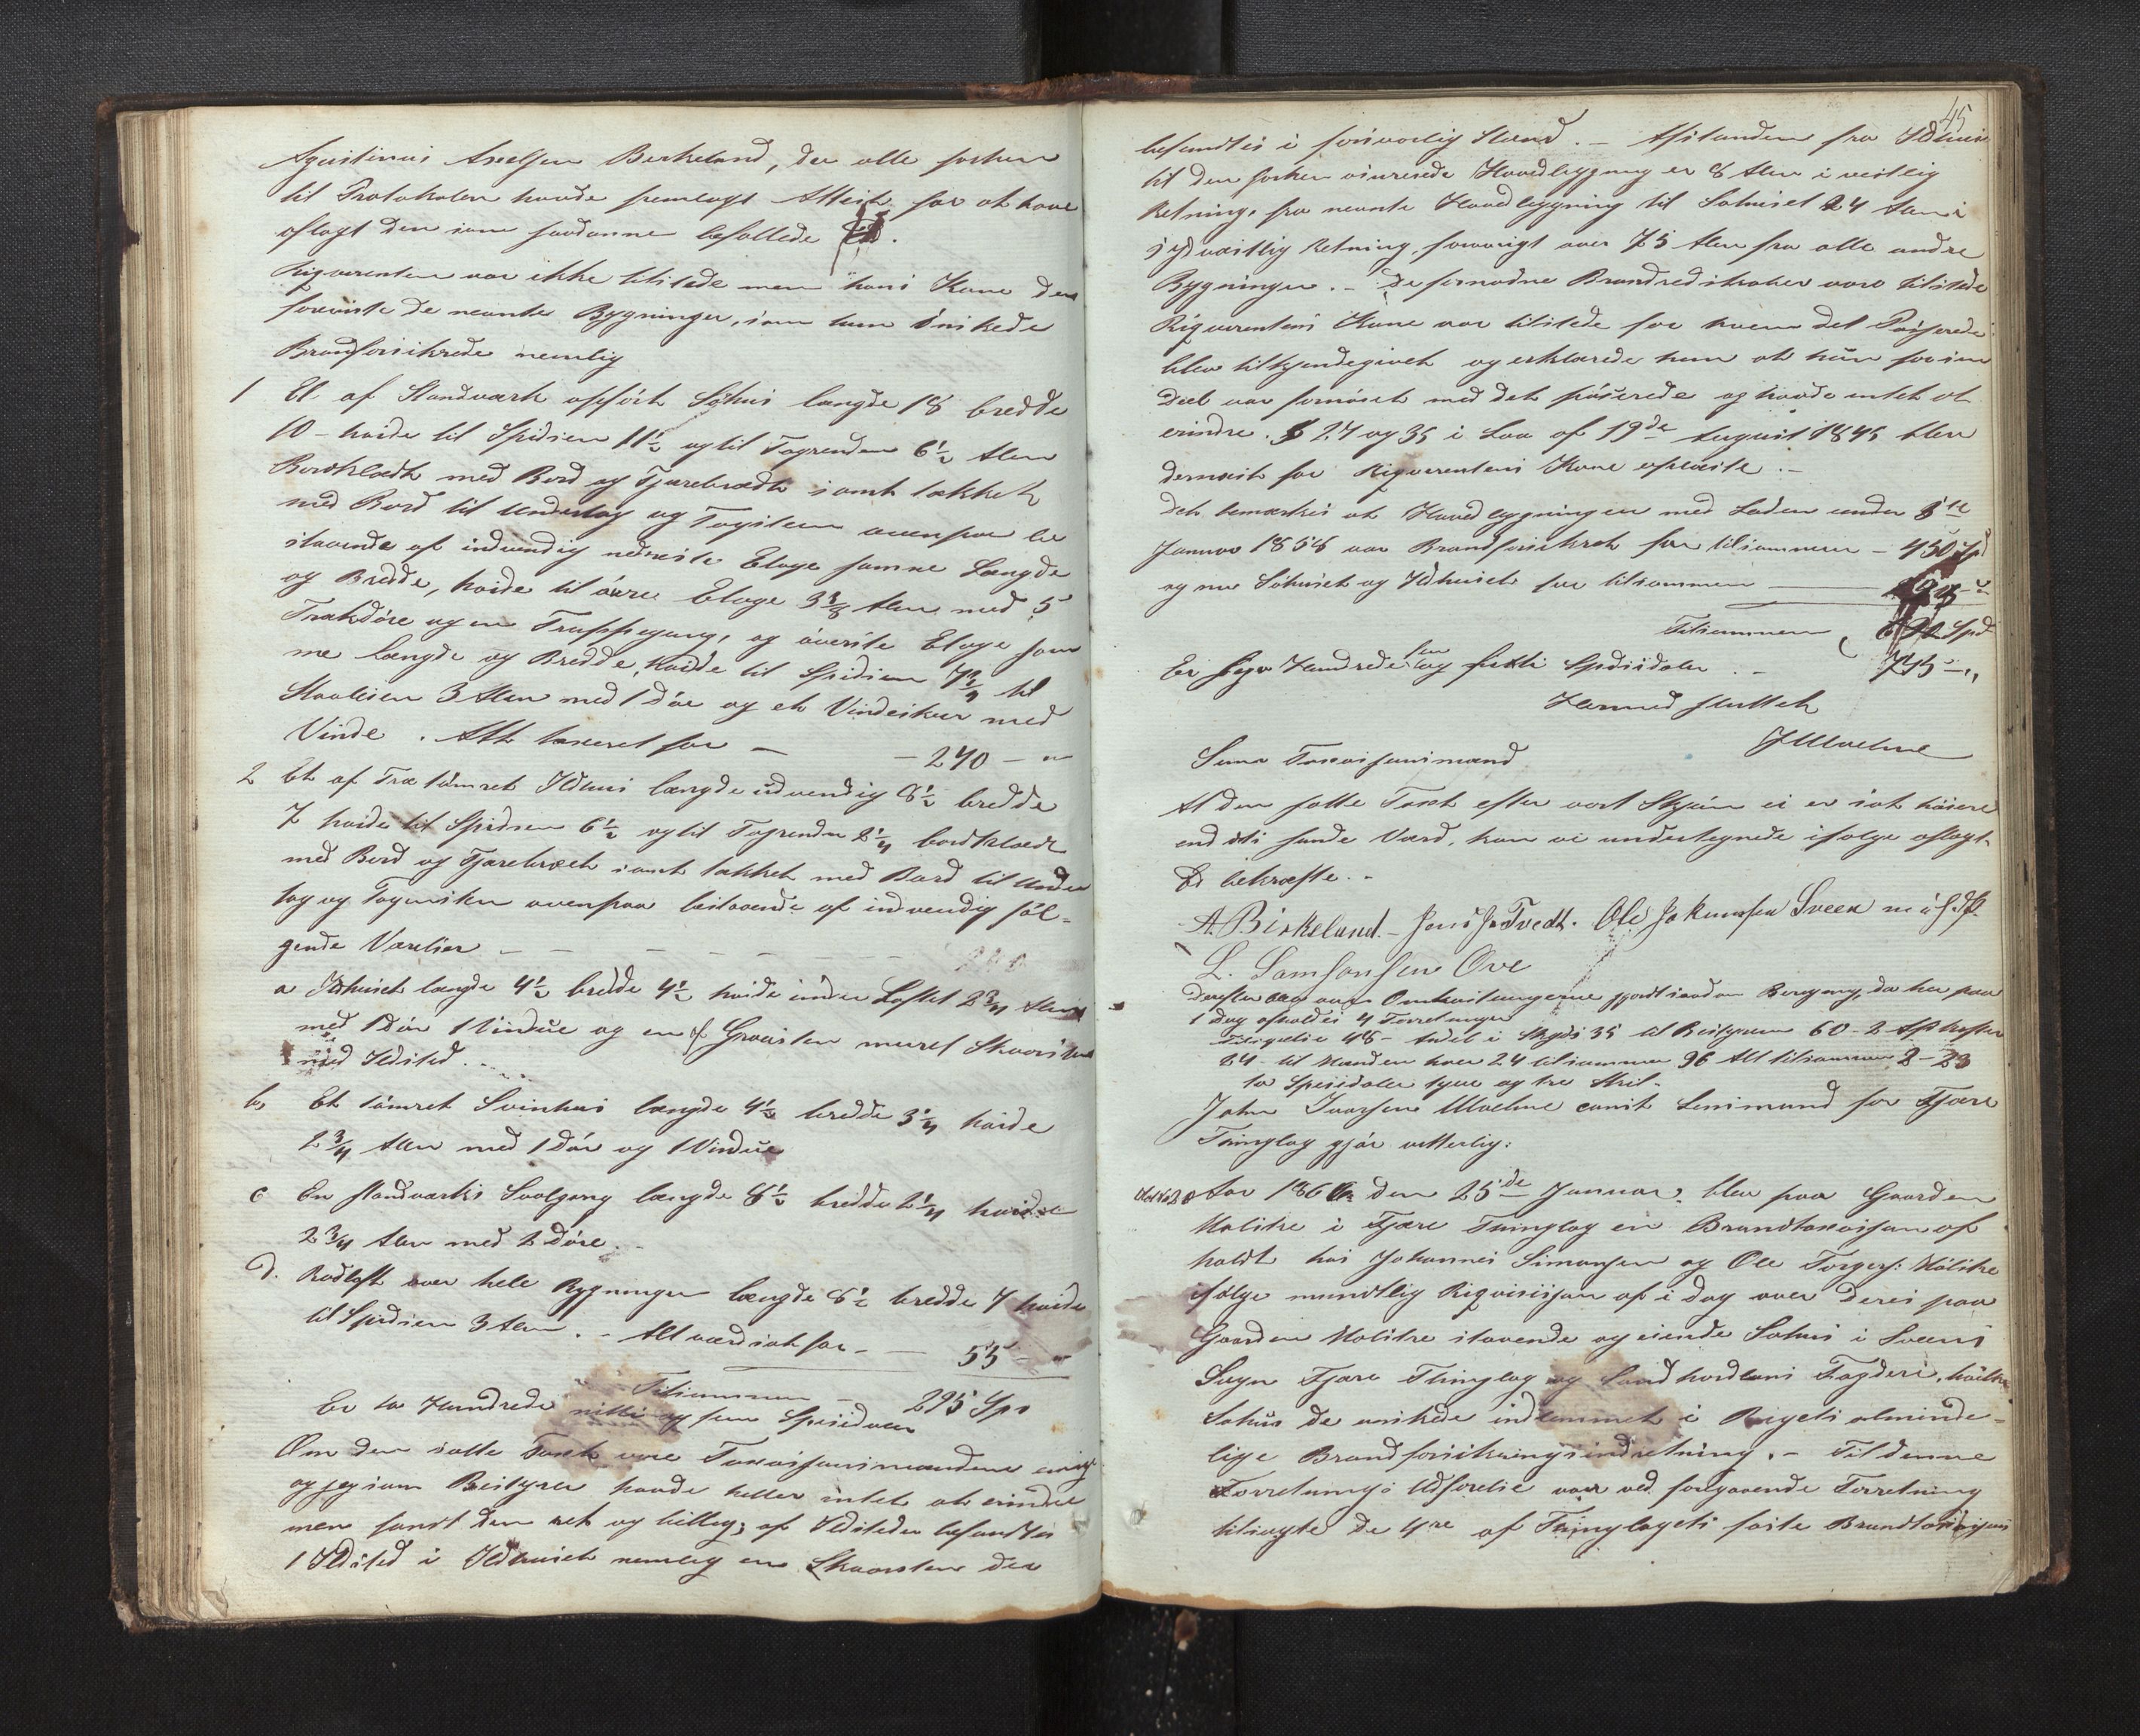 Agustinus Axelsen Birkeland, der alle forhen
til Protokolen havde fremlagt Attest for at have
aflagt den som saadanne befallede Ed.
Riqvirenten var ikke tilstede men hans Kone der
foreviste de nevnte Bygninger, som hun önskede
Brandforsikrede nemlig
1 Et af Standværk opfört Söhus længde 18 bredde
10 - høide til Spidsen 11½ og til Tagrenden 6½ Alen
Bordklædt med Bord og Tjærebrædt samt tækket
med Bord til Underlag og Tagsteen ovenpaa be
staaende af indvendig nederste Etage samme Længde
og Bredde, høide til övre Etage 3 3/8 Alen med 5
Trækdöre og en Trappegang, og överste Etage sam
me længde og Bredde, høide til Spidsen 7¾ til
Stavleien 3 Alen med 1 dör og et Vindeskur med
Vinde . Alt taxeret for — — 240 — "
2 Et af Træ tömret Ildhuus længde udvendig 8½ bredde
7 høide til Spidsen 6½ og til Tagrenden 2¼ bordklædt
med Bord og Tjærebræet samt tækket med Bord til Under
lag og Tagsteen ovenpaa bestaaende af indvendig föl-
gende Værelser —
a Ildhuset længde 4½ bredde 4½ høide under Loftet 2¾ Alen
med 1 Dör 1 Vindue og en af Graasten muret Skorsteen
med Ildsted.
b, Et tömret Svinhus længde 4½ bredde 3¼ høide
2¾ Alen med 1 Dör og 1 Vindue
c En standværks Svalgang længde 8½ bredde 2¼ høide
2¾ Alen med 2 döre.
d. Rodloft over hele Bygningen længde 8½ bredde 7 høide
til Spidsen 3 Alen. - Alt værdsat for — 55 - "
Tilsammen — 295 Spd
Er to Hundrede nitti og fem Speisidaler
Om den satte Taxt vare Taxasjonsmændene enig
og jeg som Bestyrer havde heller intet at erindre
men fandt den ret og billig; af Ildsteder befandtes
1 Ildsted i Ildhuset nemlig en Skorsten der
45
befandtes i forsvarlig Stand. - Afstanden fra Ildhuus
til den forhen assurerede Hovedbygning er 8 Alen i vestlig
Retning, fra nevnte Hovedbygning til Söhuset 24 Alen i
sydvestlig Retning, forövrigt over 75 Alen fra alle andre
Bygninger. - De fornødne Brandredskaber vare tilstede
Riqvirentens Kone var tilstede for hvem det Passerede
blev tilkjendegivet og erklærede hun at hun for sin
Deel var fornöiet med det passerede og havde intet at
erindre. § 27 og 35 i Lov af 19de August 1845 blev
dernæst for Riqvirentens Kone oplæste. -
Det bemærkes at Hovedbygningen med Laden under 8de
Januar 1858 var Brandforsikret for tilsammen - 450 Spd
og nu Söhuset og Ildhuset for tilsammen — 295 - "
Tilsammen Spd
745 - "
Er syv Hundrede fem og firti Spesidaler . -
Hermed sluttet
JMoelme
Som Taxasjonsmænd
At den satte Taxt efter vort Skjön ei er sat höiere
end dets sande Værd, kan vi undertegnede ifölge aflagt
Ed bekræfte. -
A. Birkeland. - Jens J. Tvedt. Ole Jakunsen Sveen m i f. P.
L. Samsonsen Ove
Derefter var Omkostningerne gjordt saadan Beregning, da her paa
1 Dag afholdtes 4 Forretninger
48 - Andel i Skyds 35 til Bestyreren 60 - 2
24 - til Mænden hver 24 tilsammen 96 Alt tilsammen 2 - 23
to Spesidaler tyve og tre Skil -
John Ivarsen Moelme const Lensmand for Fjære
Thinglag gjör vitterlig:
Aar 186 den 25de Januar, blev paa Gaarden
Molike i Fjære Thinglag en Brandtaxasjon af
holdt hos Johannes Simonsen og Ole Torgers: Mölike
ifölge mundtlig Riqvisisjon af i Dag over deres paa
Gaarden Molike staaende og eiende Söhus i Sveens
Sogn Fjære Thinglag og Söndhordlens Fogderi, hvilke
Söhus de önskede indlemmet i Rigets alminde-
lige Brandforsikringsindretning. - Til denne
Forretnings Udførelse var ved foregaaende Forretning
tilsagte de 4re af Thinglagets faste Brandtaxasjons